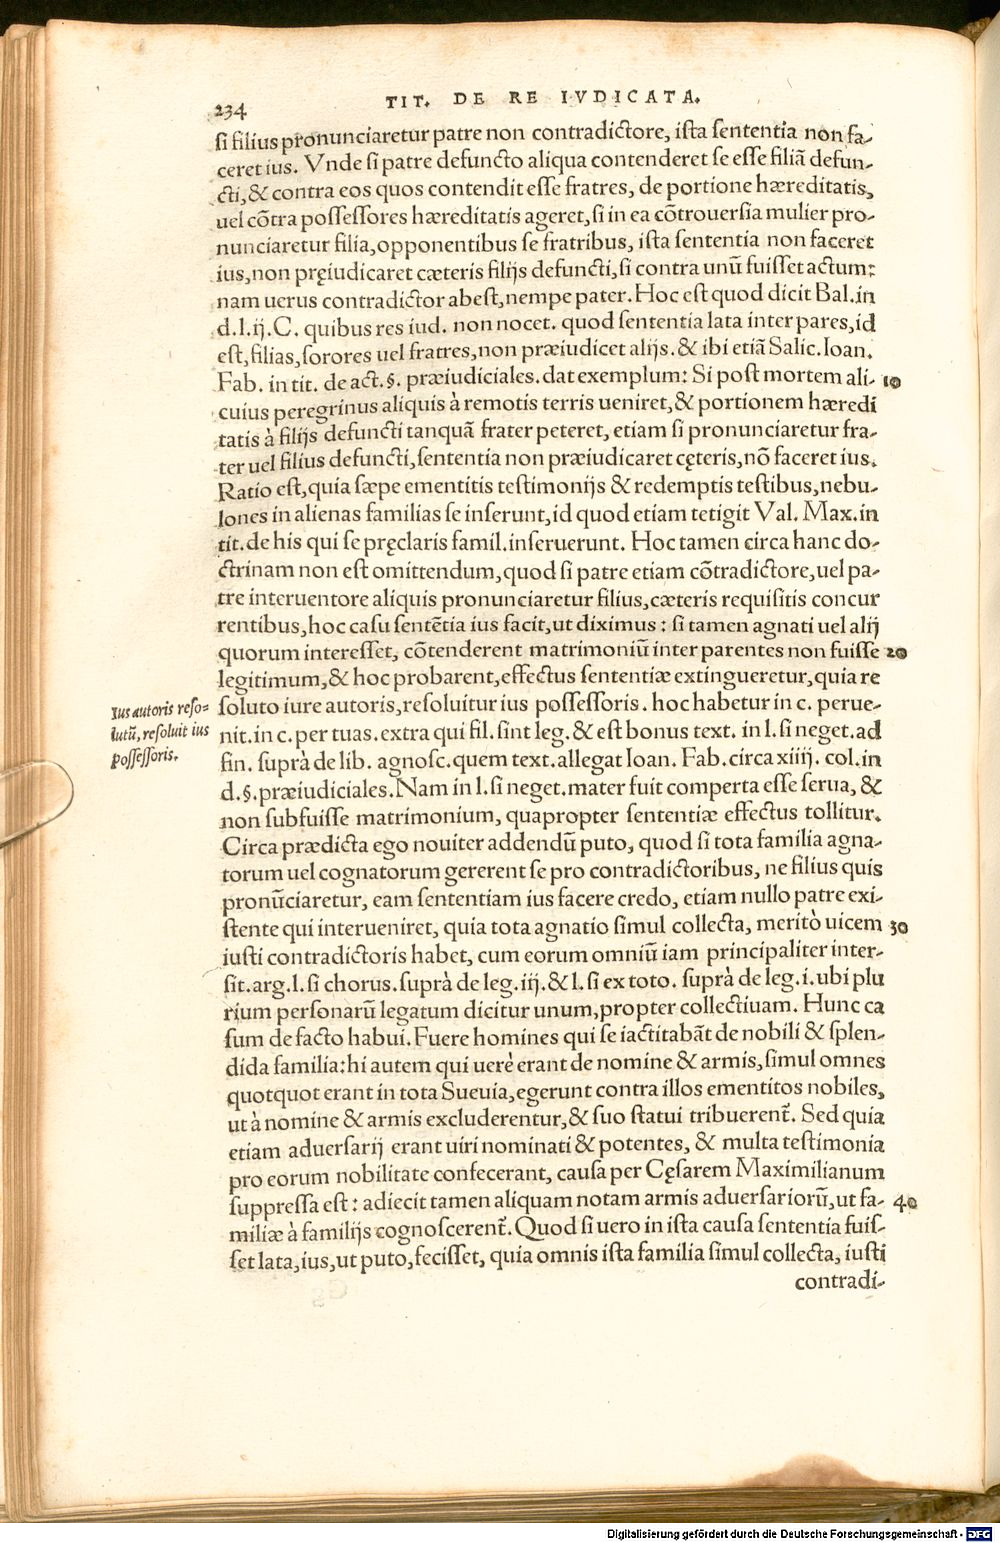 234
TIT. DE RE IVDICATA.
si filius pronunciaretur patre non contradictore, ista sententia non fa-
ceret ius. Vnde si patre defuncto aliqua contenderet se esse filiā defun-
cti, & contra eos quos contendit esse fratres, de portione hæreditatis,
uel cōtra possessores hæreditatis ageret, si in ea cōtrouersia mulier pro-
nunciaretur filia, opponentibus se fratribus, ista sententia non faceret
ius, non pręiudicaret cæteris filijs defuncti, si contra unū fuisset actum:
nam uerus contradictor abest, nempe pater. Hoc est quod dicit Bal. in
d. l. ij. C. quibus res iud. non nocet. quod sententia lata inter pares, id
est, filias, sorores uel fratres, non præiudicet alijs. & ibi etiā Salic. Ioan.
Fab. in tit. de act. §. præiudiciales. dat exemplum: Si post mortem ali- 10
cuius peregrinus aliquis à remotis terris ueniret, & portionem hæredi
tatis à filijs defuncti tanquā frater peteret, etiam si pronunciaretur fra-
ter uel filius defuncti, sententia non præiudicaret cęteris, nō faceret ius.
Ratio est, quia sæpe ementitis testimonijs & redemptis testibus, nebu-
lones in alienas familias se inserunt, id quod etiam tetigit Val. Max. in
tit. de his qui se pręclaris famil. inseruerunt. Hoc tamen circa hanc do-
ctrinam non est omittendum, quod si patre etiam cōtradictore, uel pa-
tre interuentore aliquis pronunciaretur filius, cæteris requisitis concur
rentibus, hoc casu sentētia ius facit, ut diximus: si tamen agnati uel alij
quorum interesset, cōtenderent matrimoniū inter parentes non fuisse 20
legitimum, & hoc probarent, effectus sententiæ extingueretur, quia re
soluto iure autoris, resoluitur ius possessoris. hoc habetur in c. perue-
nit. in c. per tuas. extra qui fil. sint leg. & est bonus text. in l. si neget. ad
fin. suprà de lib. agnosc. quem text. allegat Ioan. Fab. circa xiiij. col. in
d. §. præiudiciales. Nam in l. si neget. mater fuit comperta esse serua, &
non subfuisse matrimonium, quapropter sententiæ effectus tollitur.
Circa prædicta ego nouiter addendū puto, quod si tota familia agna-
torum uel cognatorum gererent se pro contradictoribus, ne filius quis
pronūciaretur, eam sententiam ius facere credo, etiam nullo patre exi-
stente qui interueniret, quia tota agnatio simul collecta, meritò uicem 30
iusti contradictoris habet, cum eorum omniū iam principaliter inter-
sit. arg. l. si chorus. suprà de leg. iij. & l. si ex toto. suprà de leg. i. ubi plu
rium personarū legatum dicitur unum, propter collectiuam. Hunc ca
sum de facto habui. Fuere homines qui se iactitabāt de nobili & splen-
dida familia: hi autem qui uerè erant de nomine & armis, simul omnes
quotquot erant in tota Sueuia, egerunt contra illos ementitos nobiles,
ut à nomine & armis excluderentur, & suo statui tribuerent̃. Sed quia
etiam aduersarij erant uiri nominati & potentes, & multa testimonia
pro eorum nobilitate confecerant, causa per Cęsarem Maximilianum
suppressa est: adiecit tamen aliquam notam armis aduersariorū, ut fa- 40
miliæ à familijs cognoscerent̃. Quod si uero in ista causa sententia fuis-
set lata, ius, ut puto, fecisset, quia omnis ista familia simul collecta, iusti
contradi-
Ius autoris reso-
lutū, resoluit ius
possessoris.
Digitalisierung gefördert durch die Deutsche Forschungsgemeinschaft - DFG